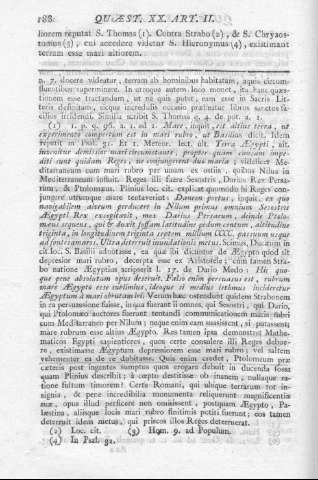 188 QUÆST. XX. ART. II.
liorem reputat S. Thomas (1). Contra Strabo (2), & S. Chrysos-
tomus (3), cui accedere videtur S. Hieronymus (4), existimant
terram esse mari altiorem.
n. 7. docere videatur, terram ab hominibus habitatam, aquis circum-
fluentibus supereminere. In utroque autem loco monet, ita hanc quæs-
tionem esse tractandam, ut ne quis putet, eam esse in Sacris Lit-
teris definitam, sicque incredulis occasio præbeatur libros sanctos fa-
cilius irridendi. Similia scribit S. Thomas q. 4. de pot. a. 1.
(1) 1. p. q. 96. a. 1. ad 2. Mare, inquit, est altius terra, ut
experimento compertum est in mari rubro, ut Basilius dicit. Idem
repetit in Psal. 91. Et 1. Meteor. lect. ult. Terra Ægypti, ait,
invenitur demissior mari circumstante; propter quam causam impe-
diti sunt quidam Reges, ne conjungerent duo maria; videlicet Me-
diterraneum cum mari rubro per unum ex ostiis, quibus Nilus in
Mediterraneum influit. Reges illi fuere Sesostris, Darius Rex Persa-
rum, & Ptolomæus. Plinius loc. cit. explicat quomodo hi Reges con-
jungere utrumque mare tentaverint: Daneon portus, inquit, ex quo
navigabilem alveum perducere in Nilum primus omnium Sesostris
Ægypti Rex excogitavit, mox Darius Persarum, deinde Ptolo-
mæus sequens, qui & duxit fossam latitudine pedum centum, altitudine
triginta, in longitudinem triginta septem millium CCCC. passuum usque
ad fontes amaros. Ultra deterruit inundationis metus. Scimus, Ducæum in
cit. loc. S. Basilii adnotasse, ea quæ ibi dicuntur de Ægypto quod sit
depresior mari rubro, decerpta esse ex Aristotele; cum tamen Stra-
bo natione Ægyptius scripserit l. 17. de Dario Medo: Hic quo-
que pene absolutum opus deseruit. Falso enim persuasus est, rubrum
mare Ægypto esse sublimius, ideoque si medius isthmus incideretur
Ægyptum à mari obrutam iri. Verum hæc ostendunt quidem Strabonem
in ea persuasione fuisse, in qua fuerant ii omnes, qui Sesostri, qui Dario,
qui Ptolomæo auctores fuerunt tentandi communicationem maris rubri
cum Mediterraneo per Nilum; nunque enim eam suasissent, si putassent
mare rubrum esse altius Ægypto. Res tamen ipsa demonstrat Mathe-
maticos Egypti sapientiores, quos certe consulere illi Reges debue-
re, existimasse Ægyptum depressiorem esse mari rubro; vel saltem
vehementer ea de re dubitasse. Quis enim credet, Ptolomæum præ
cæteris post ingentes sumptus quos erogare debuit in ducenda fossa
quam Plinius describit; à cœpto destitisse ob inanem, nullaque ra-
tione fultum timorem? Certe Romani, qui ubique terrarum tot in-
signia, & pene incredibilia monumenta reliquerunt magnificentiæ
suæ, opus illud perficere non omisissent, postquam Ægypto, Pa-
læstina, aliisque locis mari rubro finitimis potiti fuerunt; eos tamen
deterruit idem metus, qui priscos illos Reges deterruerat.
(2) Loc. cit. (3) Hom. 9. ad Populum.
(4) In Psal. 92.